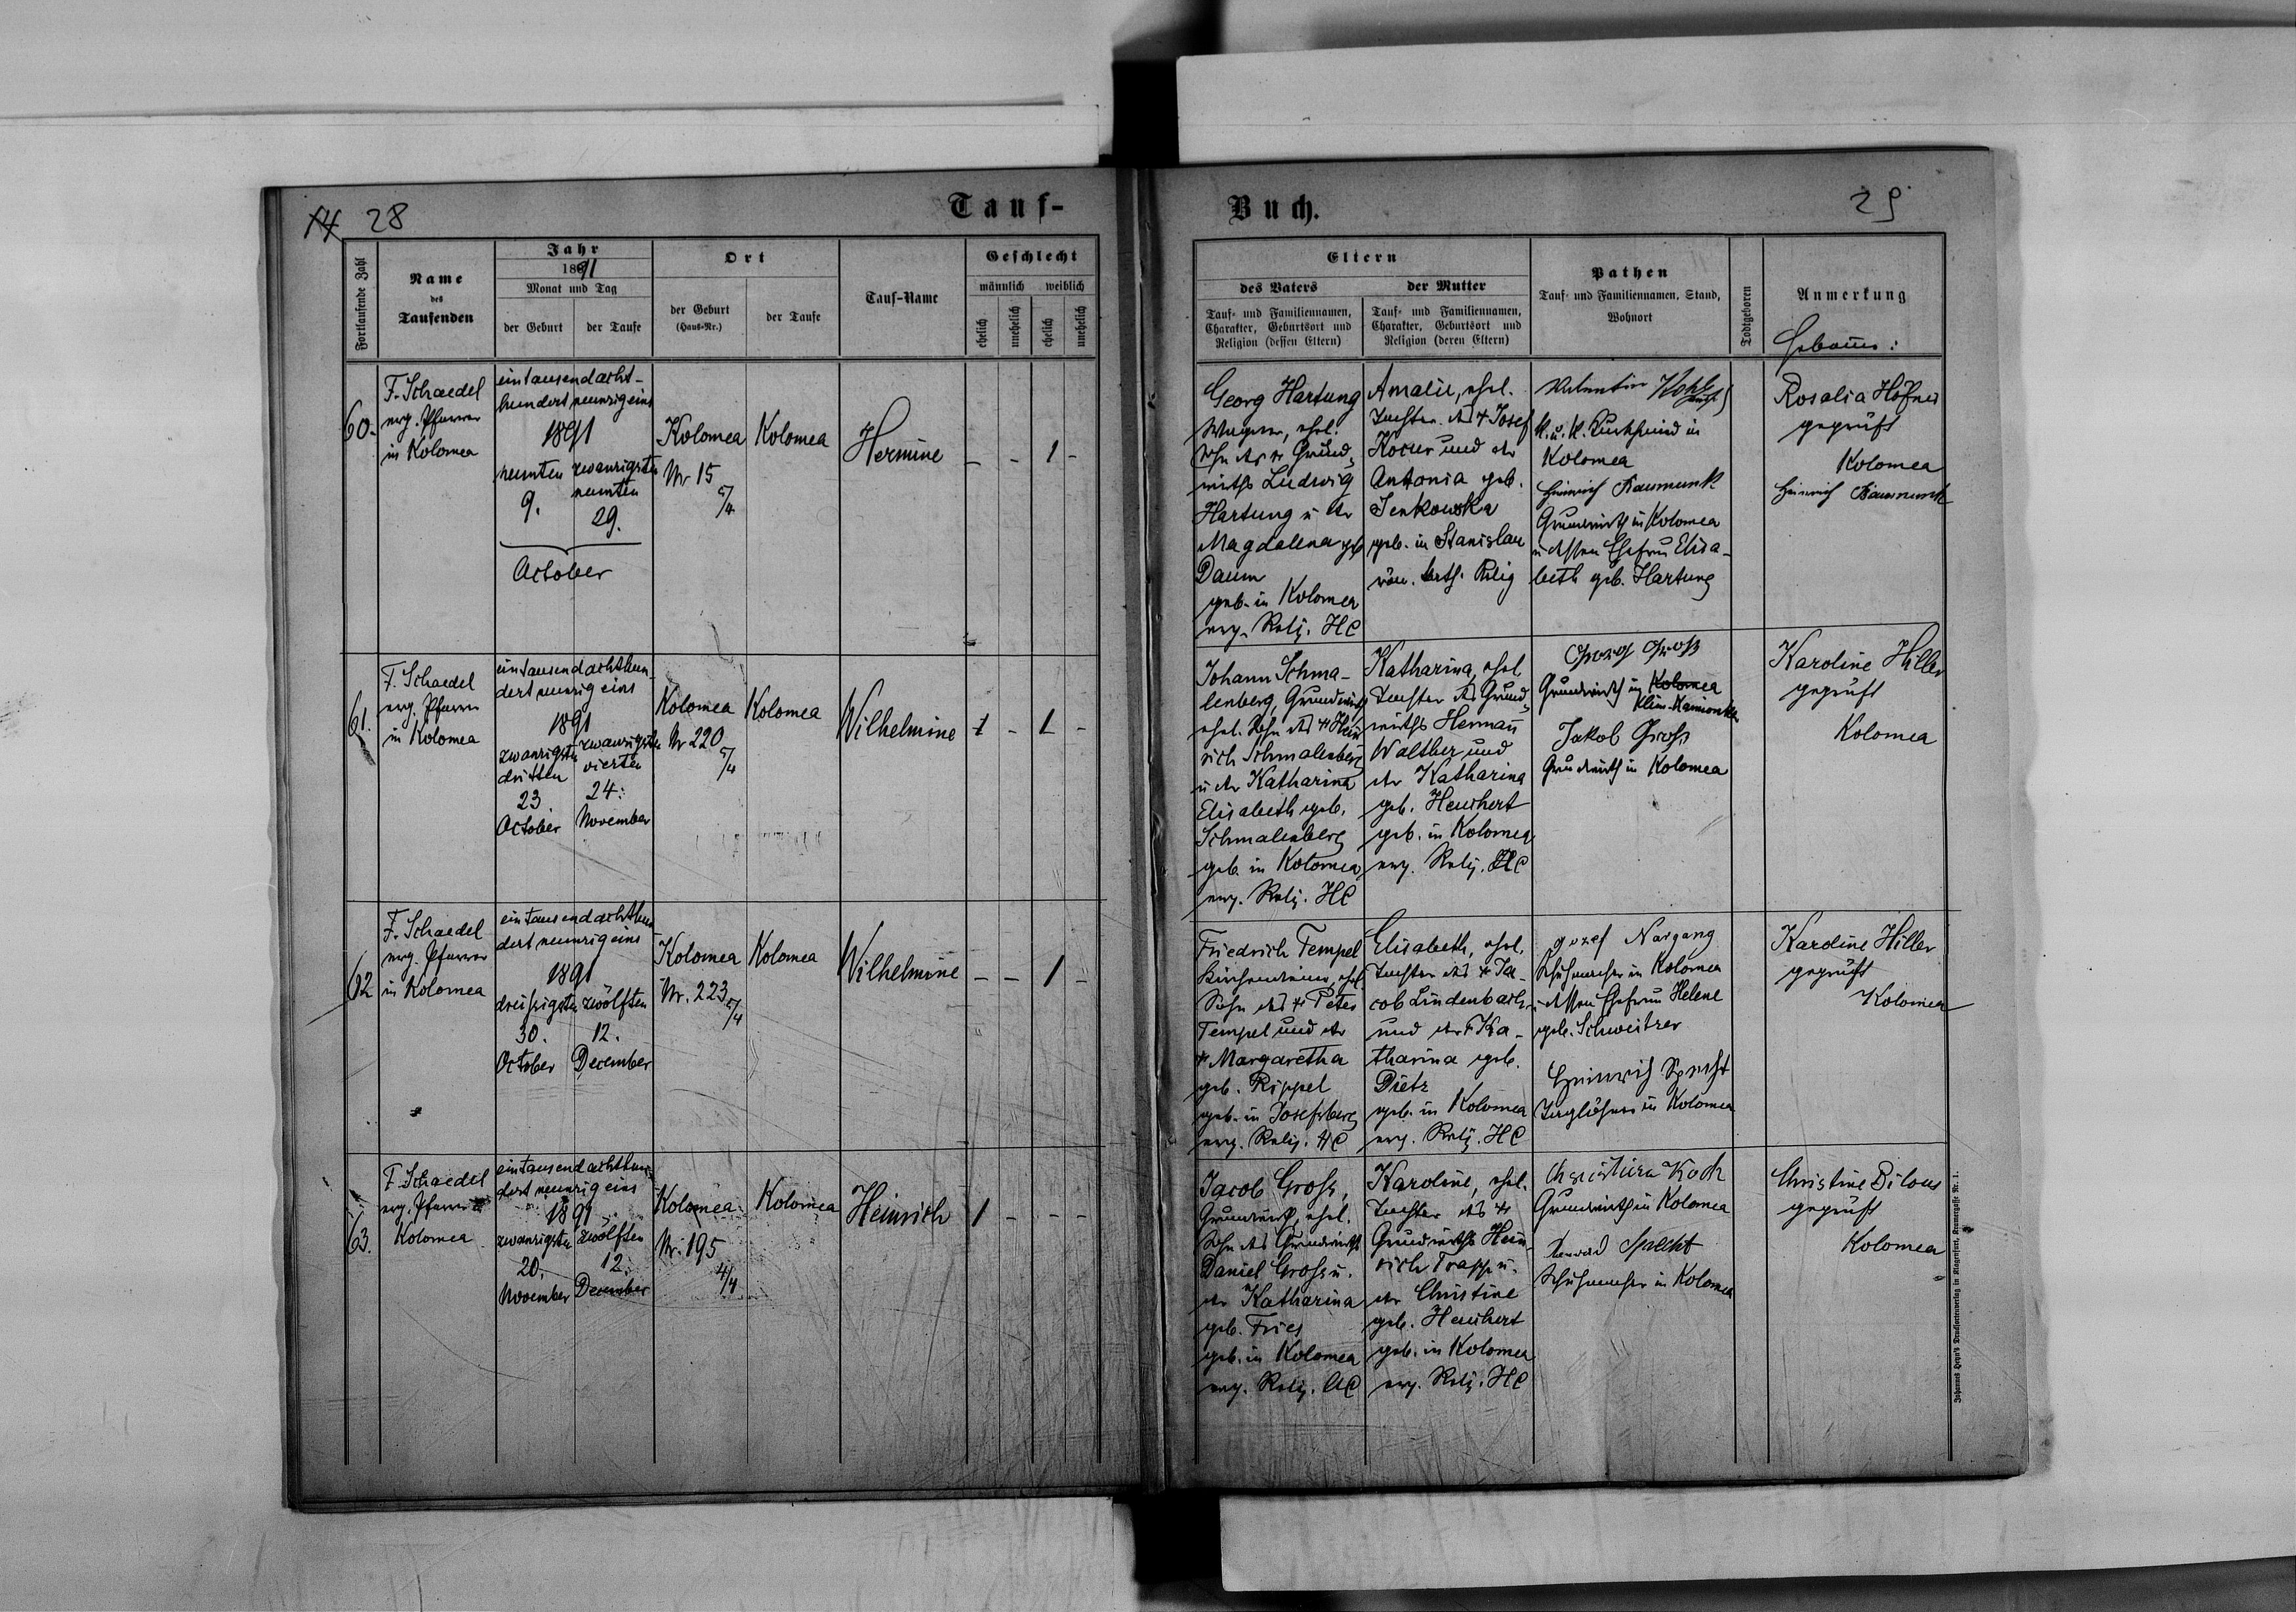 14 28
Tauf-
Fortlaufende Zahl
Name
des
Taufenden
Jahr
1891
Monat und Tag
der Geburt
der Taufe
Ort
der Geburt
(Haus-Nr.)
der Taufe
Tauf-Name
Geschlecht
männlich weiblich
ehelich
unehelich
ehelich
unehelich
60.
F. Schaedel
evg. Pfarrer
in Kolomea
eintausendacht-
hundert neunzig eins
1891
neunten
9.
zwanzigsten
neunten
29.
October
Kolomea
Nr 15
5/4
Kolomea
Hermine
- - 1 -
61.
F. Schaedel
evg. Pfarrer
in Kolomea
eintausendachthun-
dert neunzig eins
1891
zwanzigsten
dritten
23.
October
zwanzigsten
vierten
24.
November
Kolomea
Nr 220
5/4
Kolomea
Wilhelmine
1 - 1 -
62
F. Schaedel
evg. Pfarrer
in Kolomea
eintausendachthun-
dert neunzig eins
1891
dreißigsten
30.
October
zwölften
12.
December
Kolomea
Nr. 223
5/4
Kolomea
Wilhelmine
- - 1 -
63.
F. Schaedel
evg. Pfarrer
Kolomea
eintausendachthun-
dert neunzig eins
1891
zwanzigsten
20.
November
zwölften
12.
December
Kolomea
Nr. 195
4/4
Kolomea
Heinrich
1 - - -
Buch.
29
Eltern
des Vaters
Tauf- und Familiennamen,
Charakter, Geburtsort und
Religion (dessen Eltern)
der Mutter
Tauf- und Familiennamen,
Charakter, Geburtsort und
Religion (deren Eltern)
Pathen
Tauf- und Familiennamen, Stand,
Wohnort
Todtgeboren
Anmerkung
Hebamme:
Georg Hartung
Wagner, ehel.
Sohn des + Grund-
wirths Ludwig
Hartung u der
Magdalena geb
Daum
geb. in Kolomea
evg. Relig. HC
Amalie, ehel.
Tochter des + Josef
Kocur und der
Antonia geb.
Senkowska
geb. in Stanislau
röm. kath. Relig
Valentin Kohl
k. u. k. in
Kolomea
Heinrich Baumunk
Grundwirth in Kolomea
u dessen Ehefrau Elisa-
beth geb. Hartung
Rosalia Höfner
geprüft
Kolomea
Heinrich Baumunk
Johann Schma-
lenberg, Grundwirth
ehel. Sohn des + Hein
rich Schmalenberg
u der Katharina
Elisabeth geb.
Schmalenberg
geb. in Kolomea
evg. Relig. HC
Katharina, ehel.
Tochter des Grund-
wirths Hermann
Walther und
der Katharina
geb. Heuchert
geb. in Kolomea
evg. Relig. HC
Georg Groß
Grundwirth in Kolomea
Klein Kamionka
Jakob Groß
Grundwirth in Kolomea
Karoline Hiller
geprüft
Kolomea
Friedrich Tempel
Kirchendiener, ehel.
Sohn des + Peter
Tempel und der
+ Margaretha
geb. Rippel
geb. in Josefsberg
evg. Relig. HC
Elisabeth, ehel.
Tochter des + Ja-
cob Lindenbach
und der + Ka-
tharina geb.
Dietz
geb. in Kolomea
evg. Relig. HC
Jozef Nargang
Schuhmacher in Kolomea
u dessen Ehefrau Helene
geb. Schweitzer
Heinrich Specht
Taglöhner in Kolomea
Karoline Hiller
geprüft
Kolomea
Jacob Groß,
Grundwirth, ehel.
Sohn des Grundwirths
Daniel Groß u.
der Katharina
geb. Fries
geb. in Kolomea
evg. Relig. AC
Karoline, ehel.
Tochter des +
Grundwirths Hein-
rich Trapp u.
der Christine
geb. Heuchert
geb. in Kolomea
evg. Relig. HC
Koch
Grundwirth in Kolomea
Specht
Schuhmacher in Kolomea
Christine Bilous
geprüft
Kolomea
Johannes Heyn's Drucksortenverlag in Klagenfurt, Kramergasse Nr. 1.